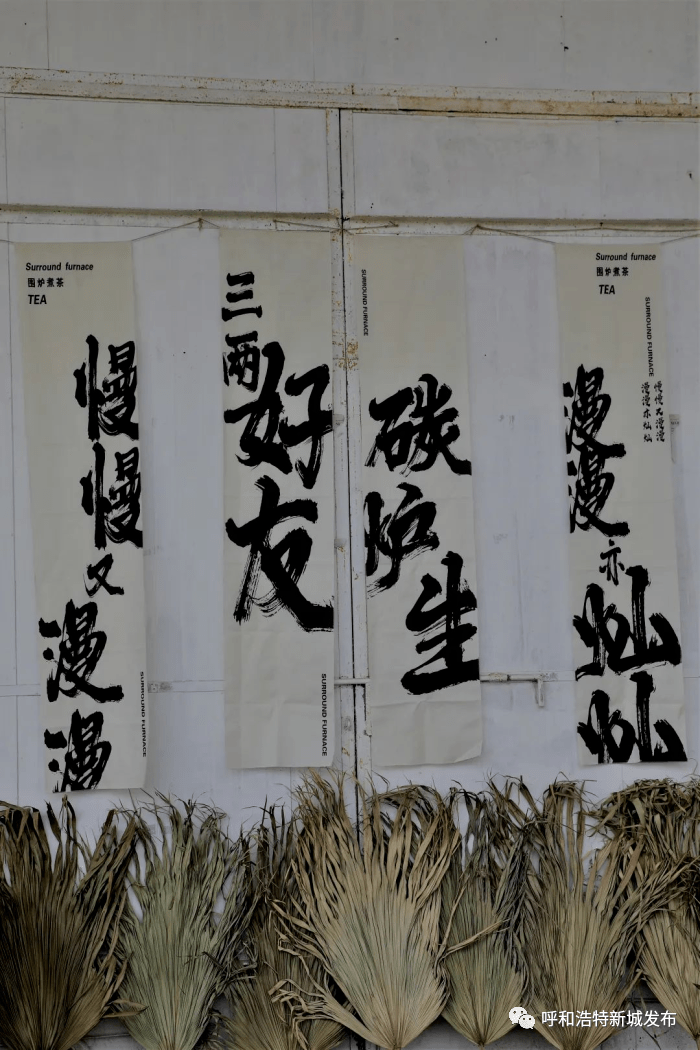 Surround furnace
围炉煮茶
TEA
慢慢又漫漫
SURROUND FURNACE
三两好友
SURROUND FURNACE
SURROUND FURNACE
碳炉生
Surround furnace
围炉煮茶
TEA
SURROUND FURNACE
慢慢又漫漫
漫漫亦灿灿
漫漫亦灿灿
呼和浩特新城发布